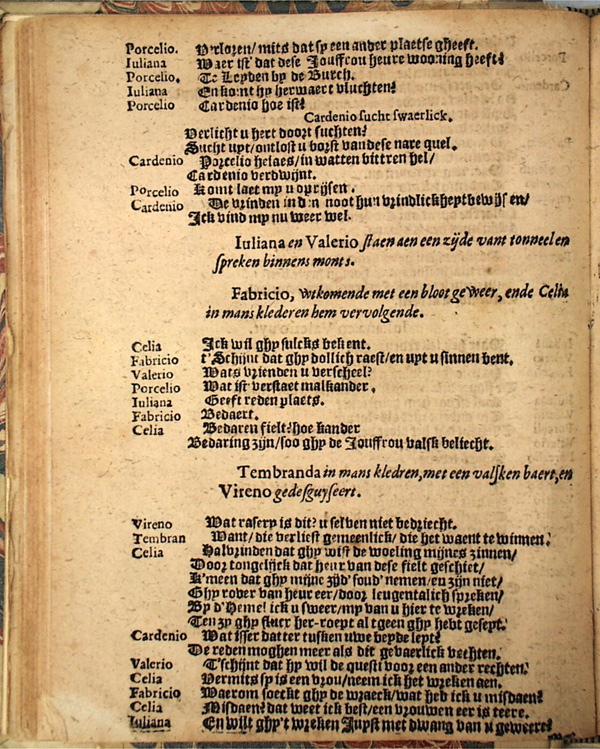 Porcelio. Verloren/ mits dat sy een ander plaetse gheeft.
Iuliana Waer ist dat dese Jouffrou heure wooning heeft?
Porcelio. Te Leyden by de Burch.
Iuliana En komt hy herwaert vluchten?
Porcelio Cardenio hoe ist?
Cardenio sucht swaerlick.
Verlicht u hert doort suchten?
Sucht upt/ ontlost u borst van dese nare quel.
Cardenio Porcelio helaes/ in watten bittren hel/
Cardenio verdwijnt.
Porcelio Komt laet my u oprijsen.
Cardenio De vrinden in den noot hun vrindlickheyt bewijsen/
Ick vind my nu weer wel.
Iuliana en Valerio staen aen een zijde vant tonneel en
spreken binnens monts.
Fabricio, wtkomende met een bloot geweer, ende Celia
in mans klederen hem vervolgende.
Celia Ick wil ghy sulcks bekent.
Fabricio t'Schijnt dat ghy dollich raest/ en uyt u sinnen bent.
Valerio Wats vrienden u verscheel?
Porcelio Wat ist verstaet malkander.
Iuliana Geeft reden plaets.
Fabricio Bedaert.
Celia Bedaren fielt? hoe kander
Bedaring zijn/ soo ghy de Jouffrou valsk beliecht.
Tembranda in mans kledren, met een valsken baert, en
Vireno gedesguyseert.
Vireno Wat rasery is dit? u selven niet bedriecht.
Tembran Want/ die verliest gemeenlick/ die het waent te winnen.
Celia Halvrinden dat ghy wist de woeling mijnes zinnen/
Door tongelijck dat heur van dese fielt geschiet/
K'meen dat ghy mijne zijd' soud' nemen/ en zijn niet/
Ghy rover van heur eer/ door leugentalich spreken/
By d'Hemel ick u sweer/ my van u hier te wreken/
Ten zy ghy fluer her-roept al tgeen ghy hebt geseyt.
Cardenio Wat isser datter tusken uwe beyde leyt?
De reden moghen meer als dit gevaerlick vechten.
Valerio T'schijnt dat hy wil de questi voor een ander rechten.
Celia Vermits sy is een vrou/ neem ick het wreken aen.
Fabricio Waerom soeckt ghy de wraeck/ wat heb ick u misdaen?
Celia Misdaen? dat weet ick best/ een vrouwen eer is teere.
Iuliana En wilt ghy't wreken Juyst met dwang van u geweere?